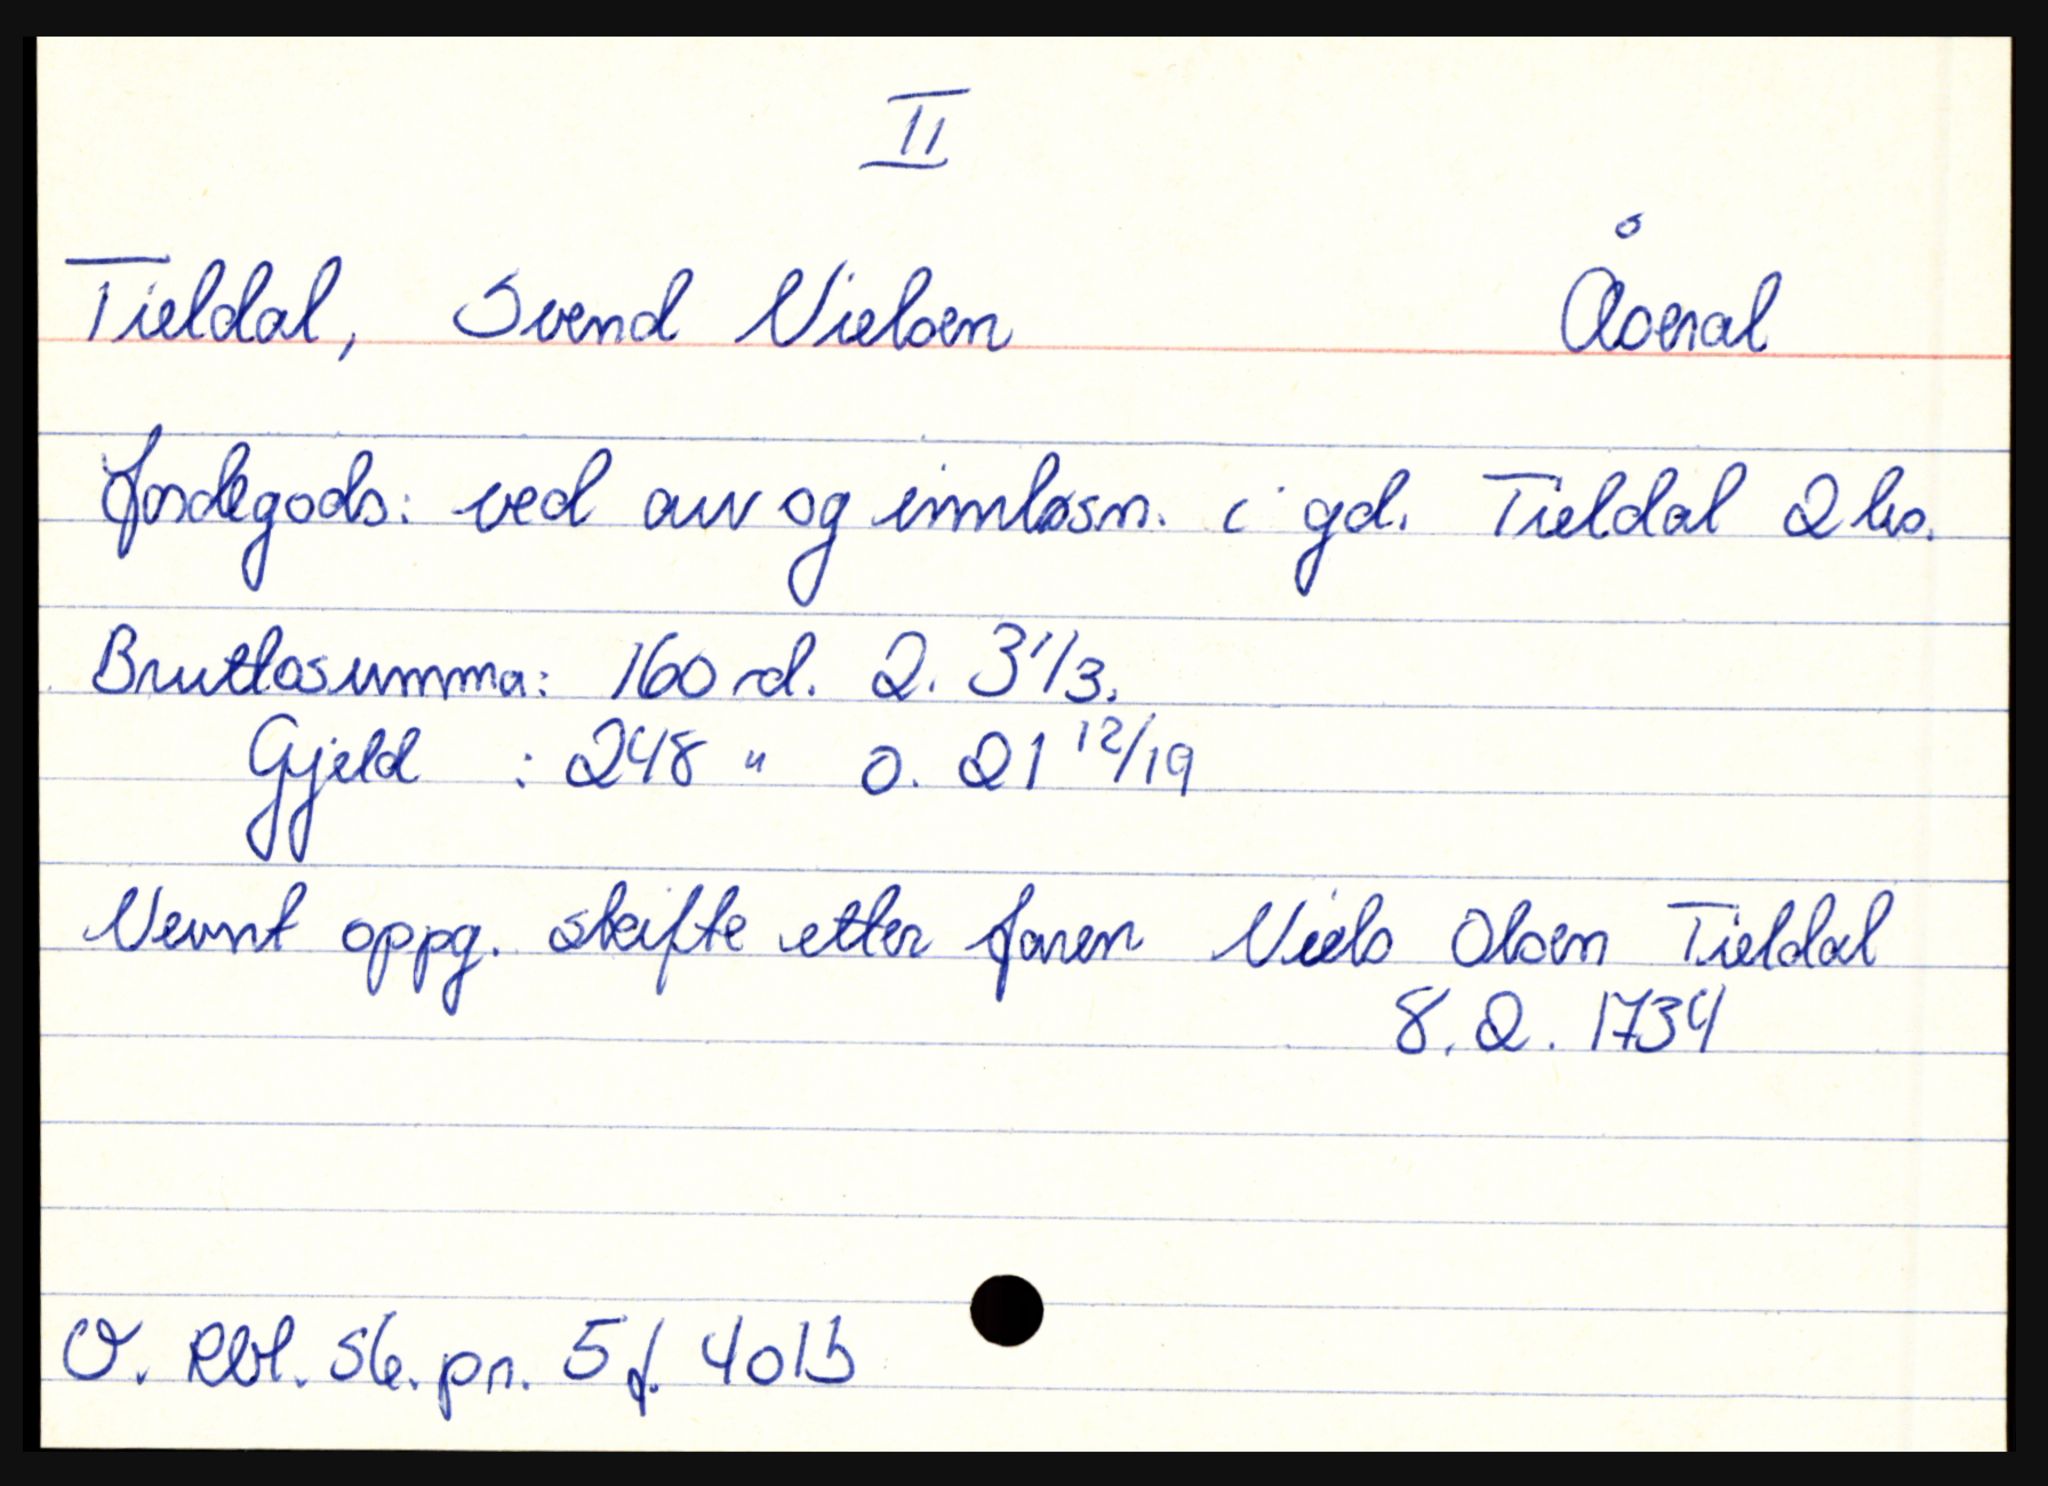 II
Tieldal, Svend Nielsen Åseral
Jordegods: ved arv og innløsn. i gd. Tieldal 2 hs.
Bruttosumma: 160 rd. 2. 3 1/3.
Gjeld : 248 " 0. 21 12/19
Nevnt oppg. skifte etter faren Niels Olsen Tieldal
8. 2. 1734
O. Rbl. sk. pr. 5 f. 401b